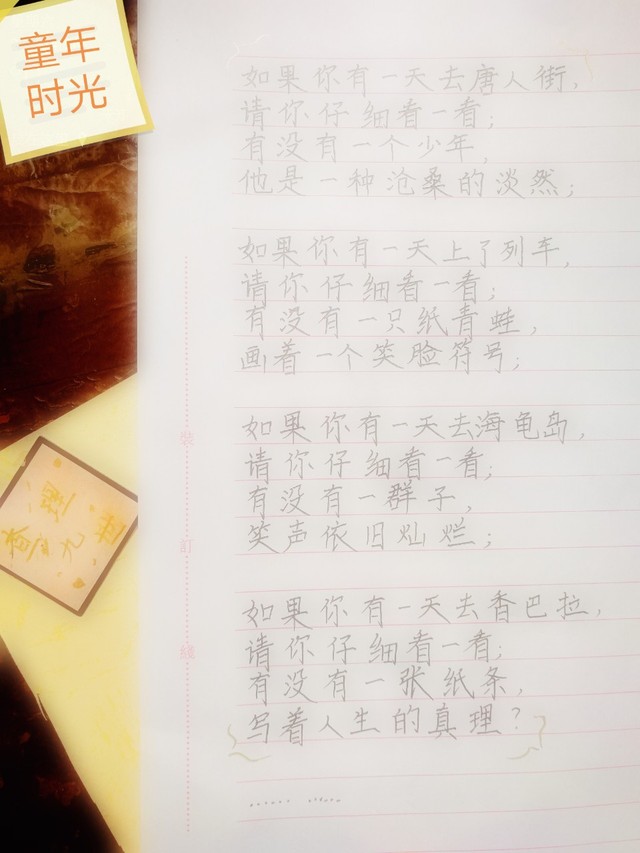 童年
时光
如果你有一天去唐人街,
请你仔细看一看;
有没有一个少年,
他是一种沧桑的淡然;
如果你有一天上了列车,
请你仔细看一看;
有没有一只纸青蛙,
画着一个笑脸符号;
如果你有一天去海龟岛,
请你仔细看一看;
有没有一群子,
笑声依旧灿烂;
如果你有一天去香巴拉,
请你仔细看一看;
有没有一张纸条,
写着人生的真理?
...... ......
裝
訂
綫